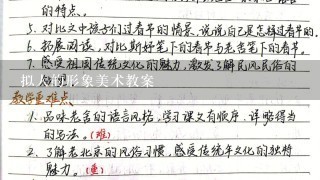 的特点。
5. 对比文中孩子们过春节的情景,说说自己是怎样过春节的。
6. 拓展阅读,对比斯妤笔下的春节与老舍笔下的春节。
7. 感受祖国传统文化的魅力,激发了解民风民俗的
拟人的形象美术教案
教学重难点
1. 品味老舍的语言风格,学习课文有顺序、详略得当
的写法。(难)
2. 了解老北京的风俗习惯,感受传统年文化的独特
魅力。(重)